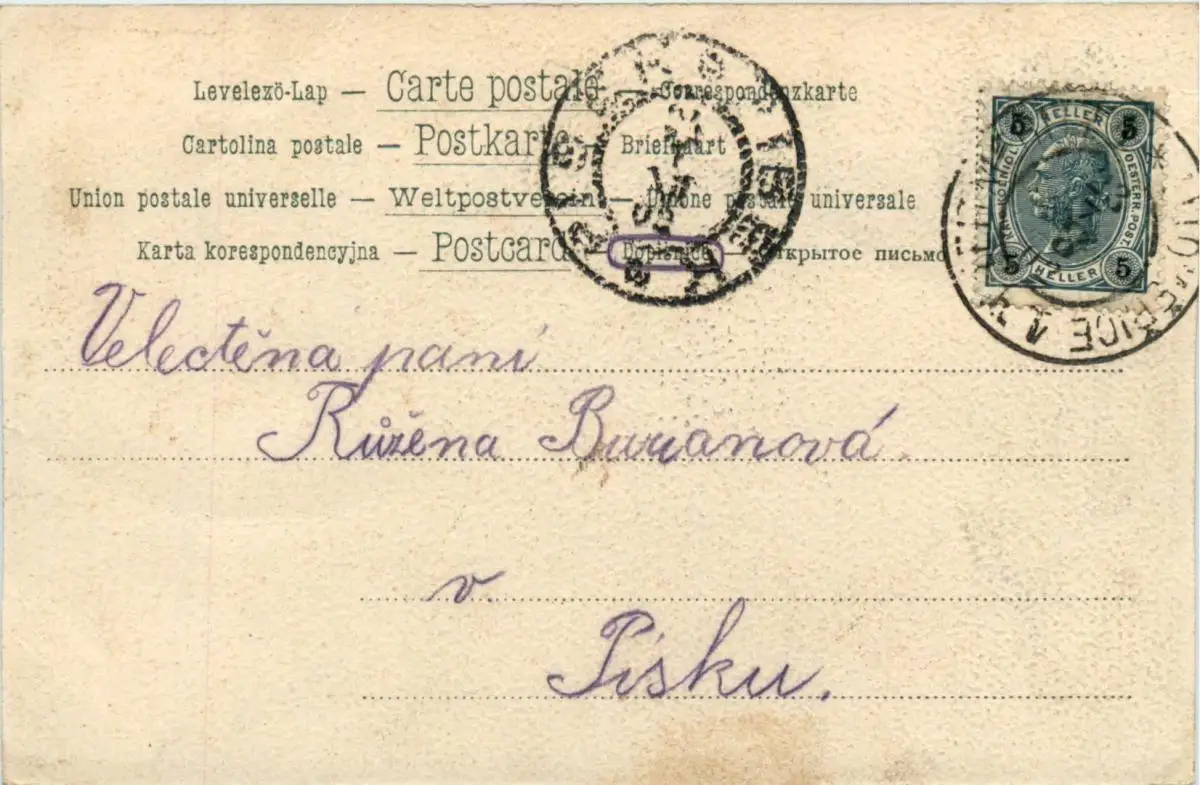 Levelezö-Lap — Carte postale — Correspondenzkarte
Cartolina postale — Postkarte — Briefkaart
Union postale universelle — Weltpostverein — Unione postale universale
Karta korespondencyjna — Postcard — Dopisnice — Открытое письмо
5 HELLER 5
5 HELLER 5
Velectěna paní
Růžěna Burianová.
v.
Písku.